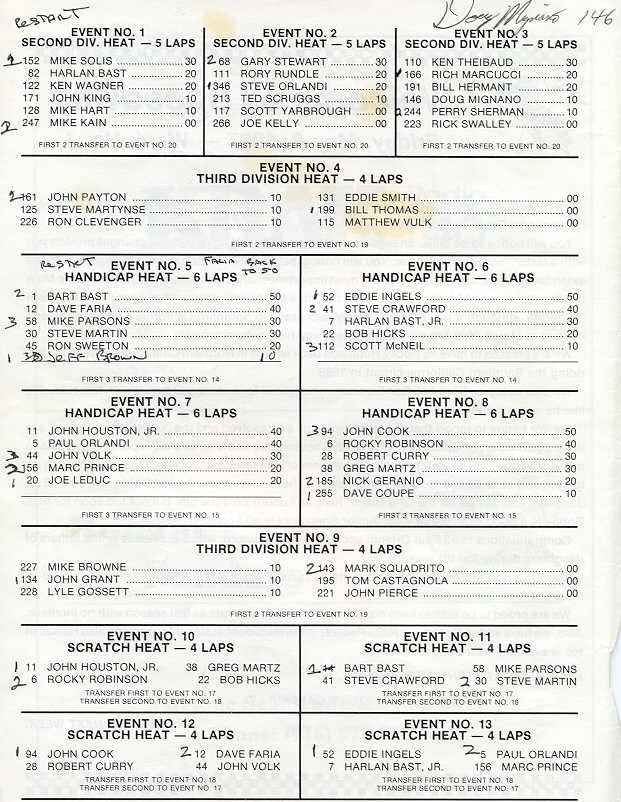 RESTART
Doug Mignano 146
EVENT NO. 1
SECOND DIV. HEAT — 5 LAPS
1 152 MIKE SOLIS 30
82 HARLAN BAST 20
122 KEN WAGNER 20
171 JOHN KING 10
128 MIKE HART 10
2 247 MIKE KAIN 00
FIRST 2 TRANSFER TO EVENT NO. 20
EVENT NO. 2
SECOND DIV. HEAT — 5 LAPS
2 68 GARY STEWART 30
111 RORY RUNDLE 20
1 346 STEVE ORLANDI 20
213 TED SCRUGGS 10
117 SCOTT YARBROUGH 00
266 JOE KELLY 00
FIRST 2 TRANSFER TO EVENT NO. 20
EVENT NO. 3
SECOND DIV. HEAT — 5 LAPS
110 KEN THEIBAUD 30
1 166 RICH MARCUCCI 20
191 BILL HERMANT 20
146 DOUG MIGNANO 10
2 244 PERRY SHERMAN 00
223 RICK SWALLEY 00
FIRST 2 TRANSFER TO EVENT NO. 20
EVENT NO. 4
THIRD DIVISION HEAT — 4 LAPS
2 161 JOHN PAYTON 10
125 STEVE MARTYNSE 10
226 RON CLEVENGER 10
131 EDDIE SMITH 00
1 199 BILL THOMAS 00
115 MATTHEW VULK 00
FIRST 2 TRANSFER TO EVENT NO. 19
RESTART
FARIA BACK TO 50
EVENT NO. 5
HANDICAP HEAT — 6 LAPS
2 1 BART BAST 50
12 DAVE FARIA 40
3 58 MIKE PARSONS 30
30 STEVE MARTIN 30
45 RON SWEETON 20
1 JEFF BROWN 10
FIRST 3 TRANSFER TO EVENT NO. 14
EVENT NO. 6
HANDICAP HEAT — 6 LAPS
1 52 EDDIE INGELS 50
2 41 STEVE CRAWFORD 40
7 HARLAN BAST, JR. 30
22 BOB HICKS 20
3 112 SCOTT McNEIL 10
FIRST 3 TRANSFER TO EVENT NO. 14
EVENT NO. 7
HANDICAP HEAT — 6 LAPS
11 JOHN HOUSTON, JR. 40
5 PAUL ORLANDI 40
3 44 JOHN VOLK 30
2 156 MARC PRINCE 20
1 20 JOE LEDUC 20
FIRST 3 TRANSFER TO EVENT NO. 15
EVENT NO. 8
HANDICAP HEAT — 6 LAPS
3 94 JOHN COOK 50
6 ROCKY ROBINSON 40
28 ROBERT CURRY 30
38 GREG MARTZ 30
2 185 NICK GERANIO 20
1 255 DAVE COUPE 10
FIRST 3 TRANSFER TO EVENT NO. 15
EVENT NO. 9
THIRD DIVISION HEAT — 4 LAPS
227 MIKE BROWNE 10
1 134 JOHN GRANT 10
228 LYLE GOSSETT 10
2 143 MARK SQUADRITO 00
195 TOM CASTAGNOLA 00
221 JOHN PIERCE 00
FIRST 2 TRANSFER TO EVENT NO. 19
EVENT NO. 10
SCRATCH HEAT — 4 LAPS
1 11 JOHN HOUSTON, JR. 38 GREG MARTZ
2 6 ROCKY ROBINSON 22 BOB HICKS
TRANSFER FIRST TO EVENT NO. 17
TRANSFER SECOND TO EVENT NO. 18
EVENT NO. 11
SCRATCH HEAT — 4 LAPS
1 BART BAST 58 MIKE PARSONS
41 STEVE CRAWFORD 2 30 STEVE MARTIN
TRANSFER FIRST TO EVENT NO. 17
TRANSFER SECOND TO EVENT NO. 18
EVENT NO. 12
SCRATCH HEAT — 4 LAPS
1 94 JOHN COOK 2 12 DAVE FARIA
28 ROBERT CURRY 44 JOHN VOLK
TRANSFER FIRST TO EVENT NO. 18
TRANSFER SECOND TO EVENT NO. 17
EVENT NO. 13
SCRATCH HEAT — 4 LAPS
1 52 EDDIE INGELS 2 5 PAUL ORLANDI
7 HARLAN BAST, JR. 156 MARC PRINCE
TRANSFER FIRST TO EVENT NO. 18
TRANSFER SECOND TO EVENT NO. 17